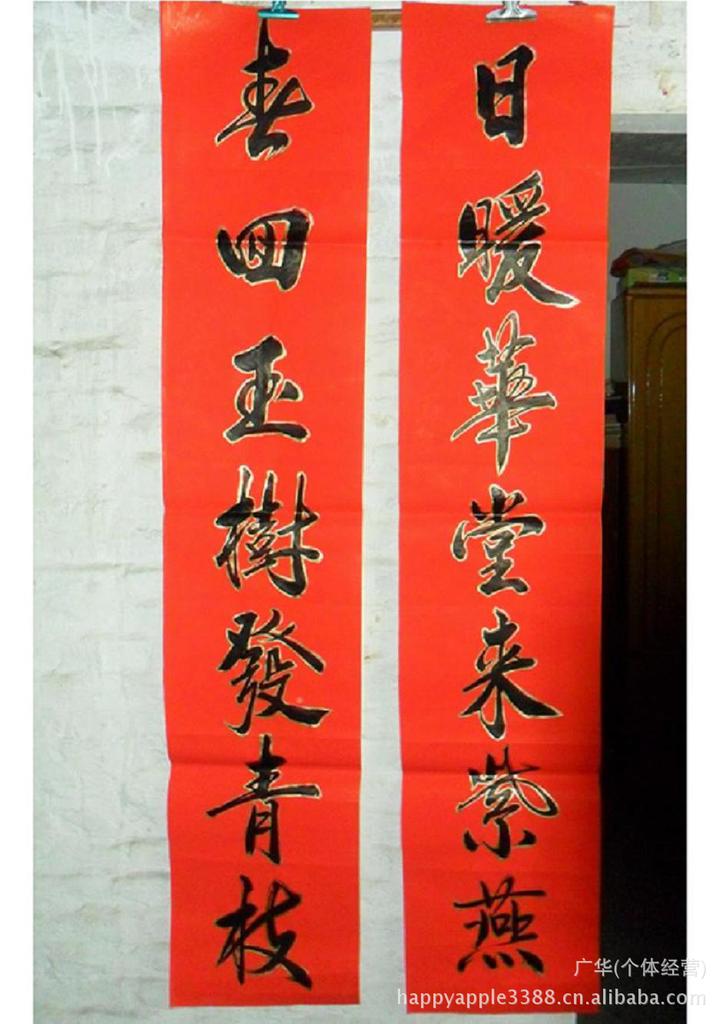 日暖華堂来紫燕
春回玉樹發青枝
广华(个体经营)
happyapple3388.cn.alibaba.com